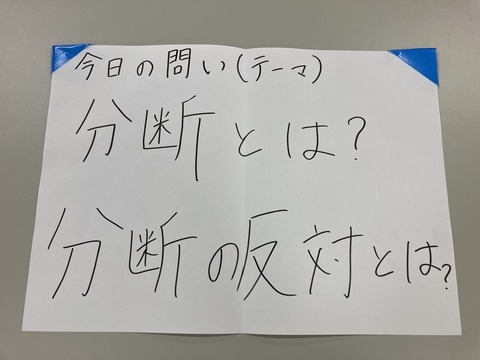 今日の問い(テーマ)
分断とは?
分断の反対とは?